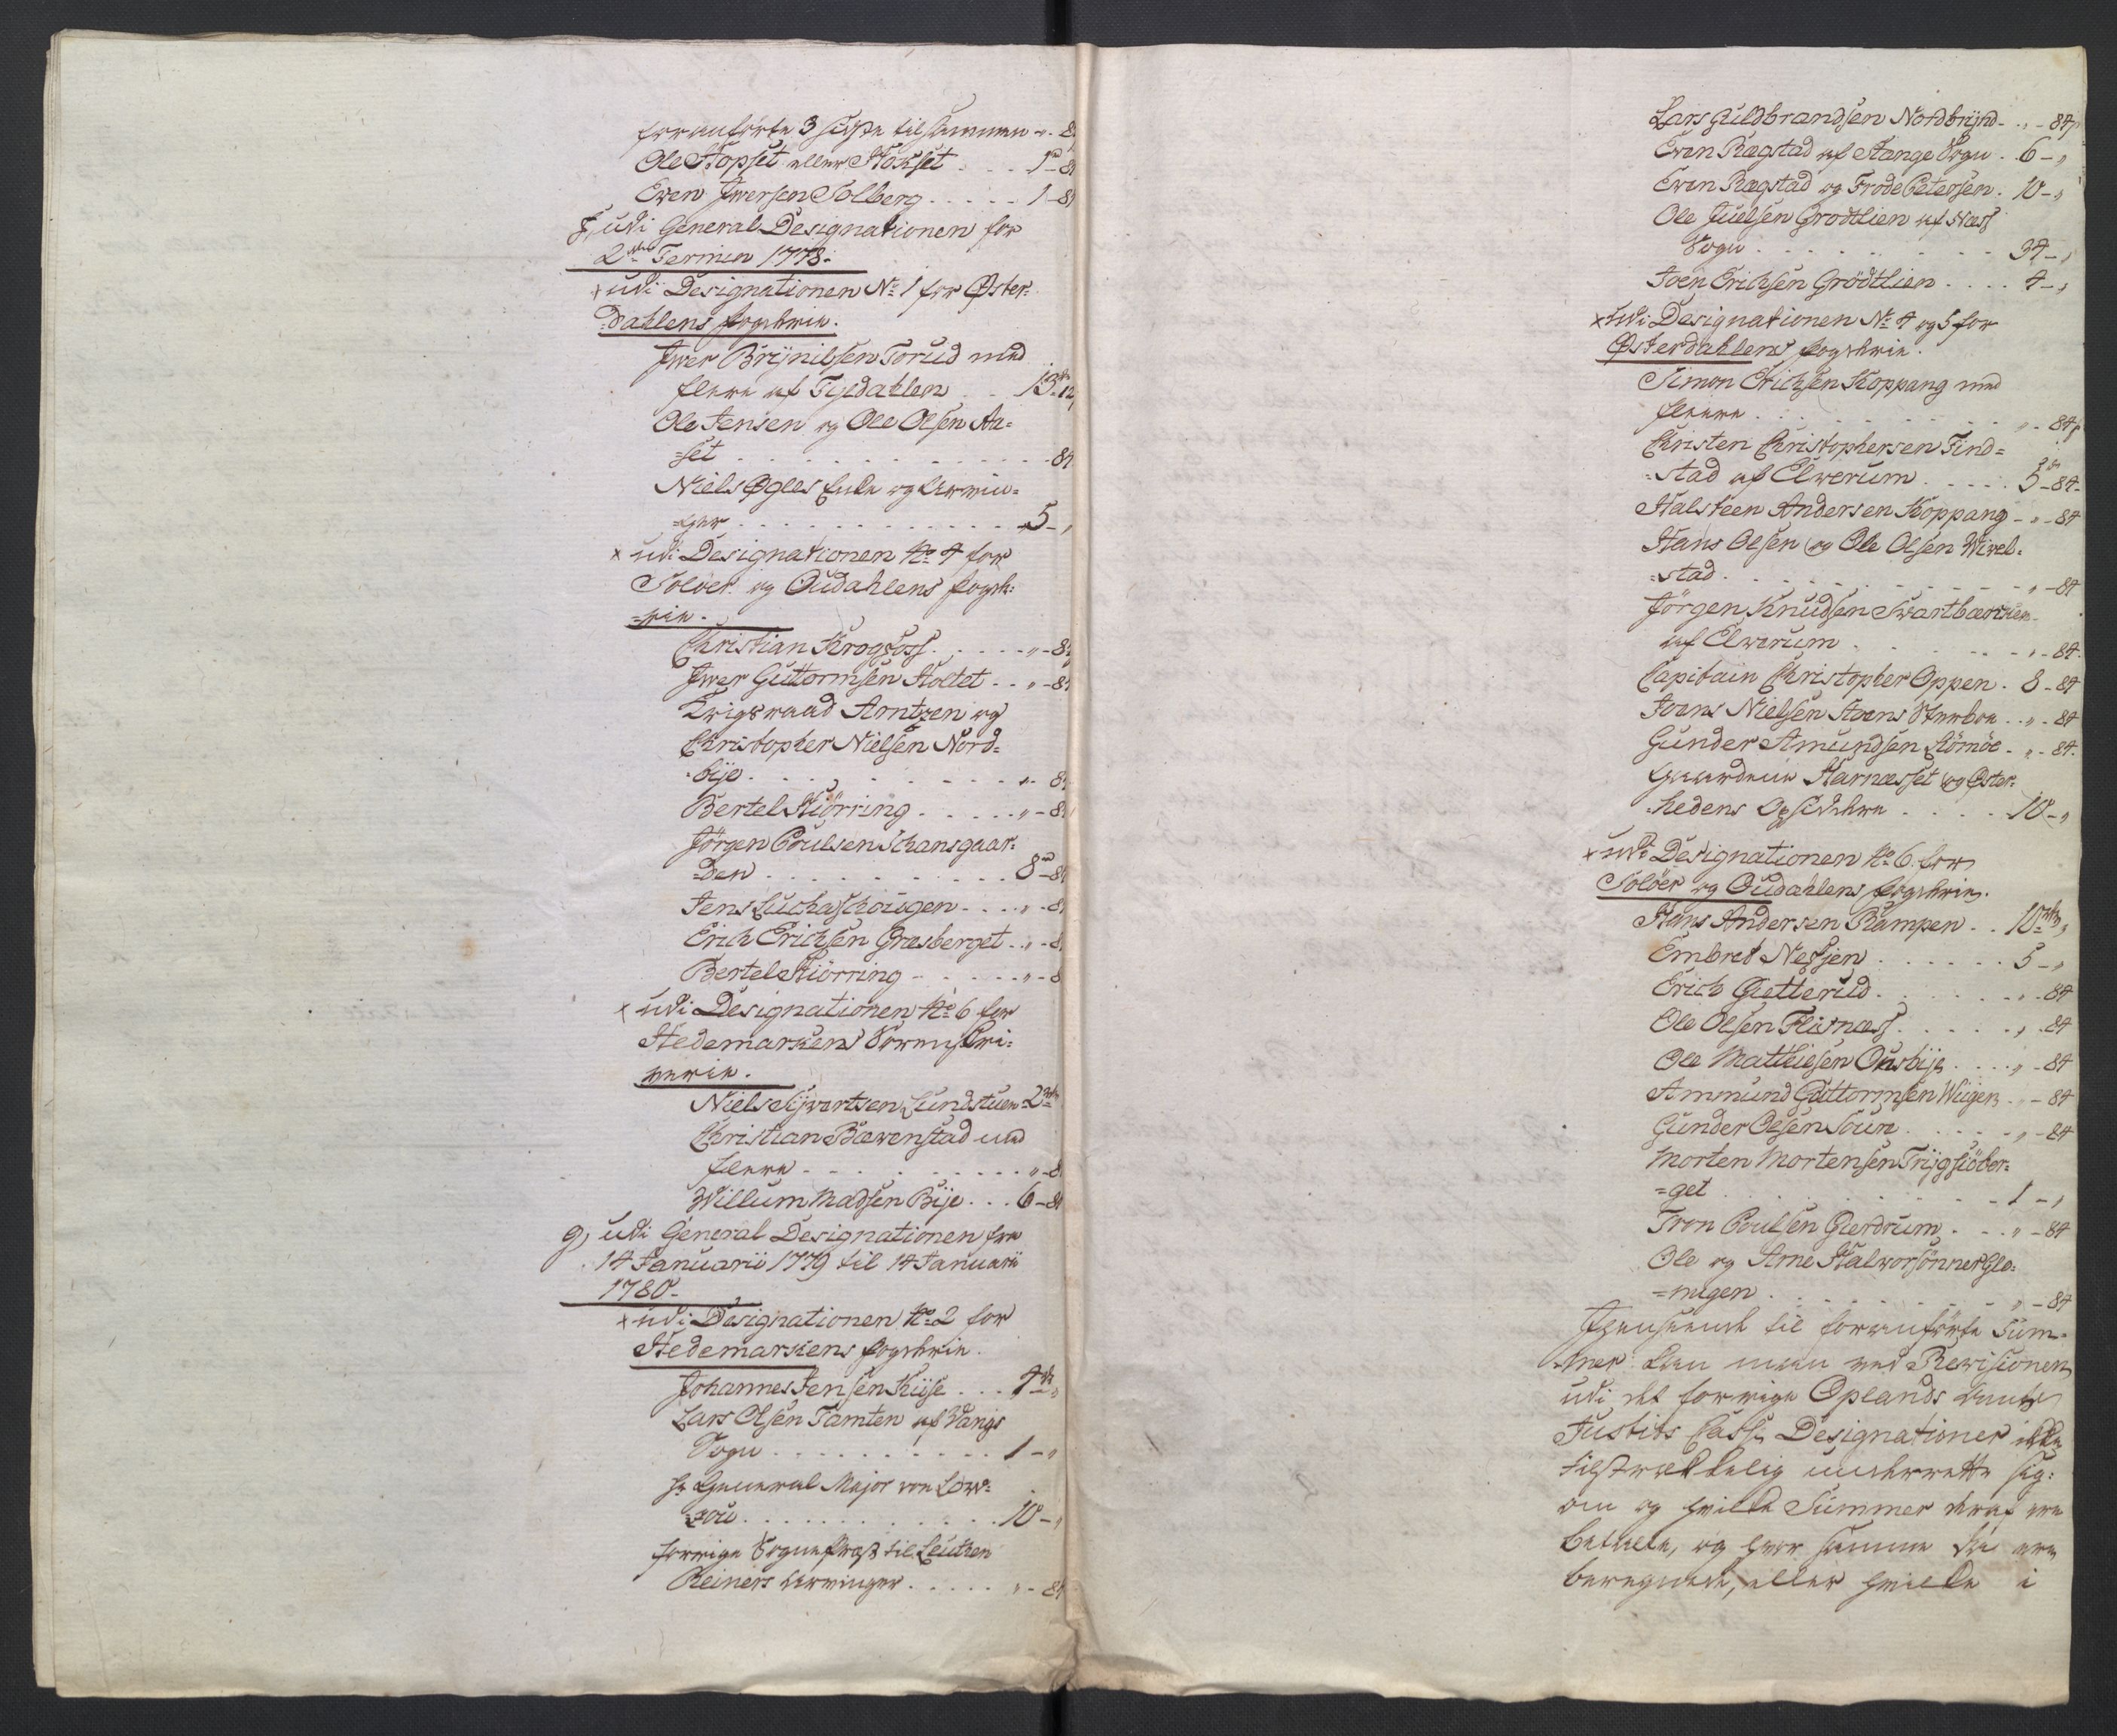 foranførte 3 sidste tilsammen „- 8
Ole Stopset eller Stokset . . . 1 - 8
Even Iwersen Solberg . . . . . 1 - 8
f, udi General Designationen for
2den Termin 1778.
x udi Designationen No 1 for Øster-
dahlens fogderie.
Iwer Brynilsen Torud med
flere af Tyldahlen . . 13 - 12
Ole Jensen og Ole Olsen Aa=
=set . . . . . . . . . - 84
Niels Øglers Enke og Arvin=
=ger . . . . . . . . . 5 - „
x udi Designationen No 4 for
Soløer og Oudahlens fogde=
=rie.
Christian Krogsoss . . . . „ - 8
Iwer Guttormsen Holtet . . „ - 8
Krigsraad Arntzen og
Christopher Nielsen Nord=
=bye . . . . . . . . „ - 8
Bertel Hiörring . . . . . „ - 8
Jörgen Poulsen Schansgaar=
=den . . . . . . . . 8 - 8
Jens Luchaschougen . . . . „ - 8
Erich Erichsen Græsberget . . „ - 8
Bertel Hiörring - . . . . „ - 8
x udi Designationen No 6 for
Hedemarkens Sorenskri=
verie.
Niels Syvertsen Lundstuen - 2
Christian Bæverstad med
flere - . . . . . . . „ - 8
Willum Madsen Bye . . . 6 - 8
g, udi General Designationen fra
14 Januarii 1779 til 14 Januarii
1780.
x udi Designationen No 2 for
Hedemarkens fogderie.
Johannes Jensen Kiise . . . 4 „
Lars Olsen Tomten af Wangs
Sogn . . . . . . . . . 1 - „
Hr General Major von Low=
=zou . . . . . . . . . 10 - „
forrige Sognepræst til Leuthen
Reiners Arvinger . . . . . „ - 84
Lars Guldbrandsen Nordbrynd - „ - 84
Even Rægstad af Stange Sogn . 6 - „
Even Rægstad og Frode Petersen . 10 - „
Ole Juelsen Grodtlien af Næss
Sogn . . . . . . . . . 34 - „
Joen Erichsen Grödtlien . . . . 4 - „
x udi Designationen No 4 og 5 for
Østerdahlens fogderie.
Simon Erichsen Koppang med
fleere . . . . . . . . . „ - 84
Christen Christophersen Find=
=stad af Elwerum . . . . 5 - 84
Halsteen Andersen Koppang - „ - 84
Hans Olsen og Ole Olsen Wivel=
=stad . . . . . . . . . „ - 84
Jörgen Knudsen Swartbæcken
af Elwerum . . . . . . „ - 84
Capitain Christopher Oppen . 8 - 84
Joens Nielsen Stoens Sterboe . . „ - 84
Gunder Amundsen Kömöe - „ - 84
Gaardene Harnæsset og Øster=
=hedens Opsiddere . . . . 10 - „
x udi Designationen No 6 for
Soløer og Oudahlens fogderie.
Hans Andersen Rampen . . 10 „
Embret Nessen . . . . . . 5 - „
Erich Gletterud . . . . . . „ - 84
Ole Olsen Flisnæss . . . . . „ - 84
Ole Mathiesen Ousbye . . . . „ - 84
Ammund Guttormsen Wiigen . . - 84
Gunder Olsen Soure . . . . . „ - 84
Morten Mortensen Trygsiöber=
=get . . . . . . . . . 1 - „
Tron Poulsen Gierdrum . . . „ - 84
Ole og Arne Halworsönner Glo=
=migen . . . . . . . . „ - 84
Igienseende til foranførte Sum=
=mer kan man ved Revisionen
udi det forrige Oplands Amts
Justits Casse Designationer ikke
tilstrækkelig underrette sig:
om og hvilke Summer deraf ere
betalte, og hvor samme da ere
beregnede, eller hvilke i